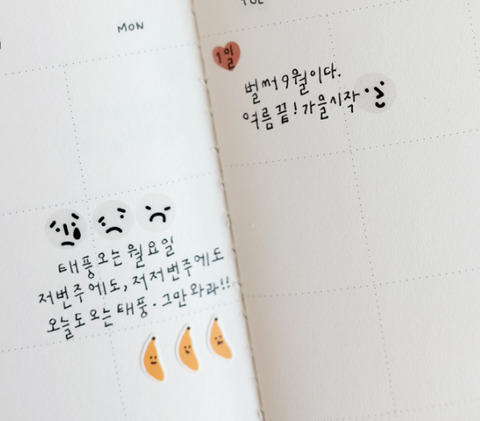 MON
태풍오는 월요일
저번주에도, 저저번주에도
오늘도 오는 태풍. 그만와라!!
1일
벌써 9월이다.
여름 끝! 가을시작